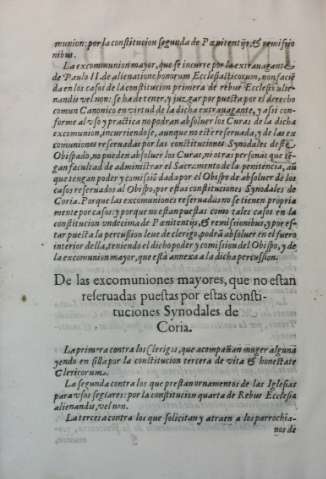 munion: por la constitucion segunda de Pænitentijs, & remissio
nibus.
La excomunion mayor, que se incurre por la extrauagante
de Paulo II. de alienatione bonorum Ecclesiasticorum, non facie
da en los casos de la constitucion primera de rebus Ecclesiæ alie-
nandis vel non: se ha de tener, y juzgar por puesta por el derecho
comun Canonico en virtud de la dicha extrauagante, y assi con-
forme al vso y practica no podran absoluer los Curas de la dicha
excomunion, incurriendose, aunque no este reseruada, y de las ex
comuniones reseruadas por las constituciones Synodales deste
Obispado, no pueden absoluer los Curas, ni otras personas que te-
gan facultad de administrar el Sacramento de la penitencia, aũ
que tengan poder y comissiõ dado por el Obispo de absoluer de los
casos reseruados al Obispo, por estas constituciones Synodales de
Coria. Porque las excomuniones reseruadas no se tienen propria
mente por casos, y porque no estan puestas como tales casos en la
constitucion vndecima de Pænitentijs, & remissionibus, y por es-
tar puesta la percussion leue de clerigo, podrà absoluer en el fuero
interior della, teniendo el dicho poder y comission del Obispo, y de
la excomunion mayor, que està annexa a la dicha percussion.
De las excomuniones mayores, que no estan
reseruadas puestas por estas consti-
tuciones Synodales de
Coria.
La primera contra los Clerigos, que acompañan muger alguna
yendo en silla por la constitucion tercera de vita & honestate
Clericorum.
La segunda contra los que prestan ornamentos de las Iglesias
para vsos seglares: por la constitucion quarta de Rebus Ecclesiæ
alienandis, vel non.
La tercera contra los que solicitan y atraen a los parrochia-
nos de